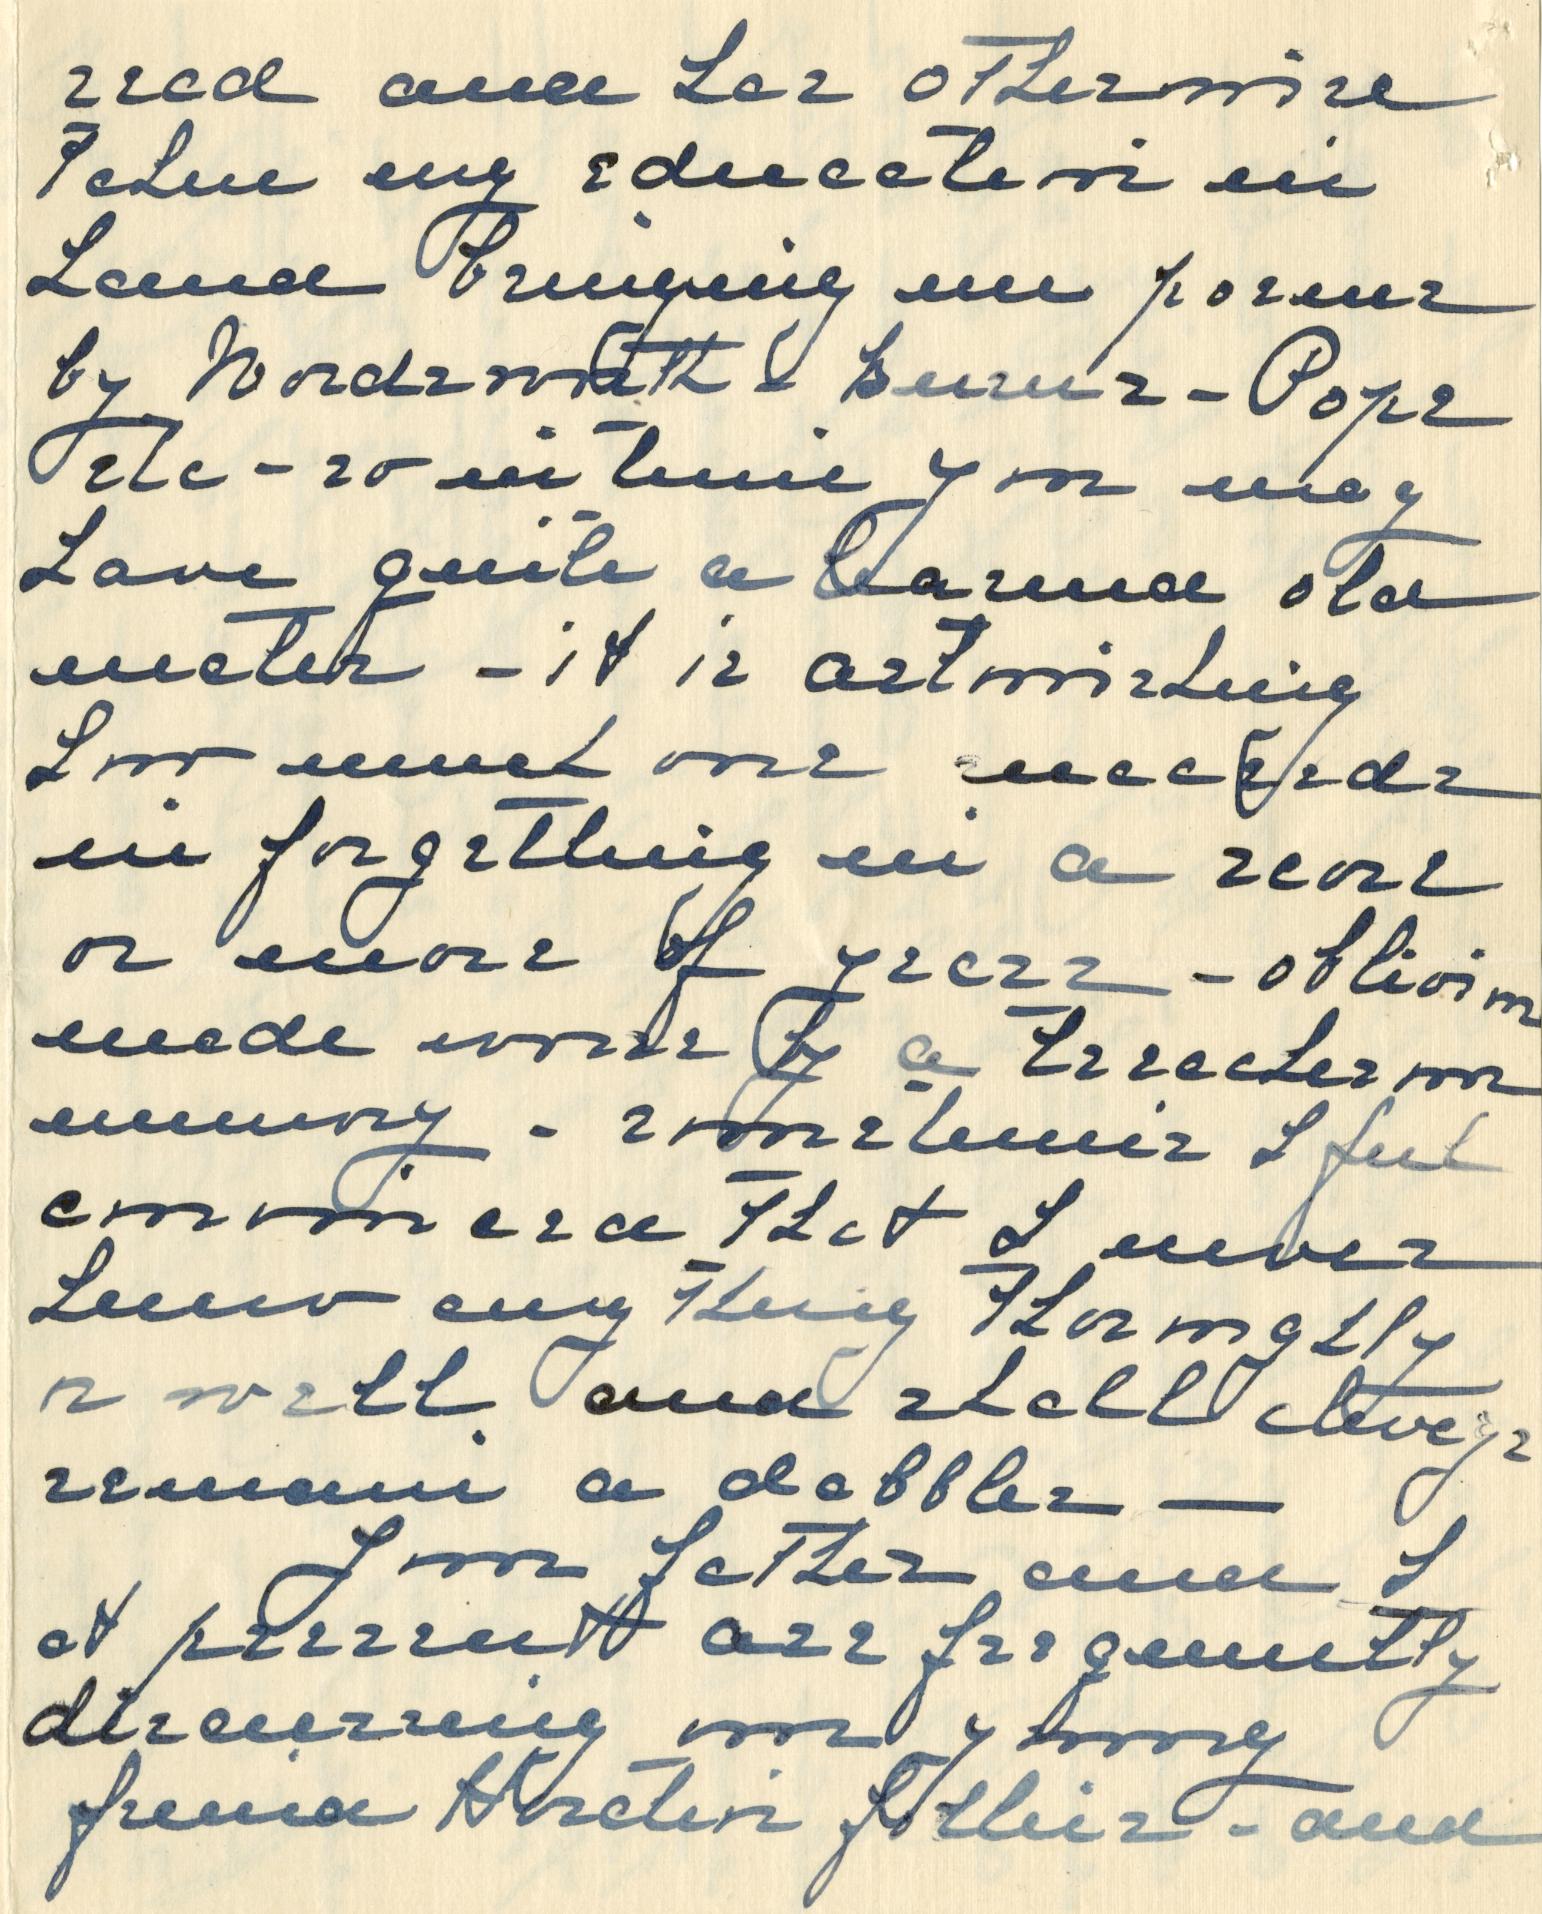 read and has otherwise
taken my education in
hand bringing me poems
by Wordsworth - Burns - Pope
etc - so in time you may
have quite a learned old
mater - it is astonishing
how much one succeeds
in forgetting in a score
or more of years - oblivion
made worse by a treacherous
memory - sometimes I feel
convinced that I never
knew anything thoroughly
or well and shall always
remain a dabbler —
Your father and I
at present are frequently
discussing our young
friend Horatio - and